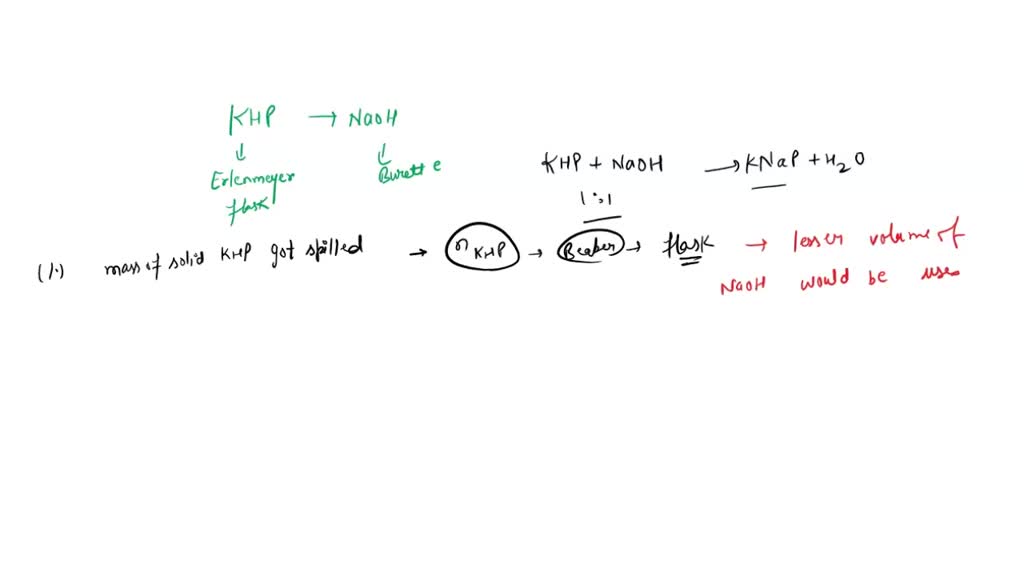 KHP → NaOH
↓ ↓
Erlenmeyer flask
Burette
KHP + NaOH → KNaP + H₂O
1:1
(1.) mass of solid KHP got spilled → n KHP → Beaker → flask → lesser volume of
NaOH would be use